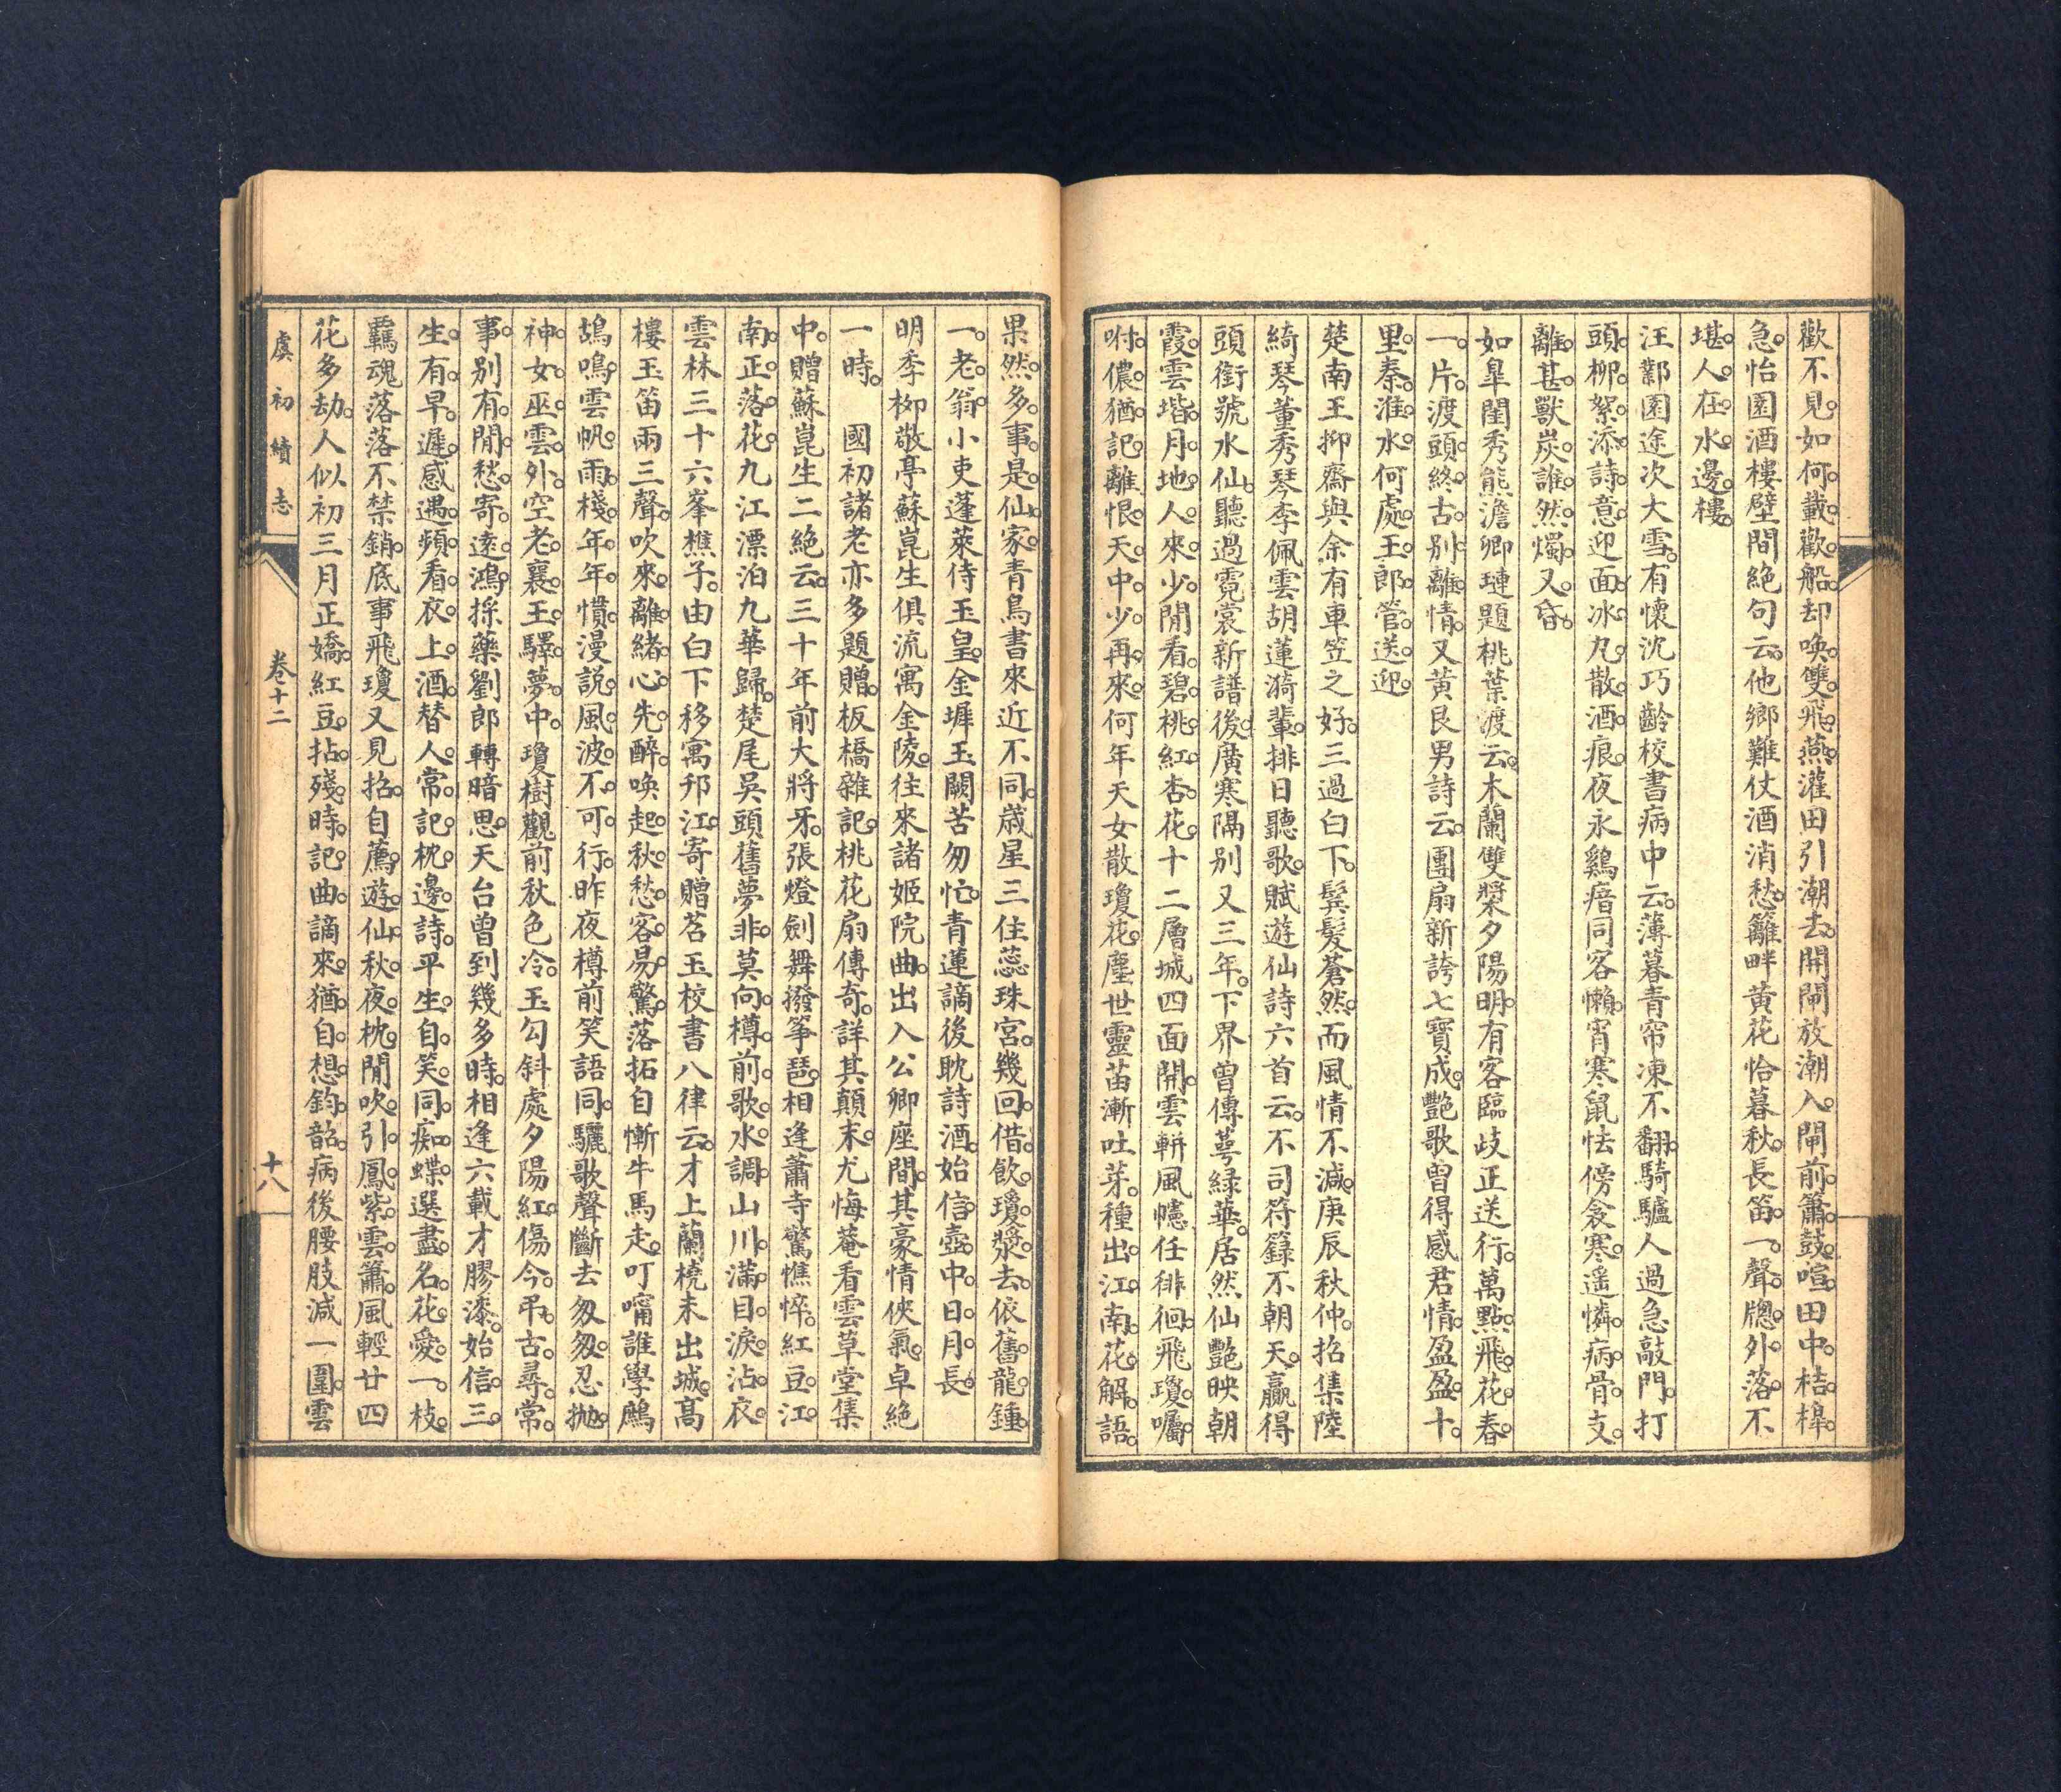 歡不見如何載歡船却喚雙飛燕灌田引潮去開閘放潮入閘前簫鼓喧田中桔槔
急怡園酒樓壁間絶句云他鄉難仗酒消愁籬畔黄花恰暮秋長笛一聲牕外落不
堪人在水邊樓
汪鄴園途次大雪有懷沈巧齡校書病中云薄暮青帘凍不翻騎驢人過急敲門打
頭柳絮添詩意迎面冰丸散酒痕夜永鷄瘖同客懶宵寒鼠怯傍衾寒遥憐病骨支
離甚獸炭誰然燭又昏
如臯閨秀熊澹卿璉題桃葉渡云木蘭雙槳夕陽明有客臨歧正送行萬點飛花春
一片渡頭終古别離情又黄艮男詩云團扇新誇七寶成艷歌曾得感君情盈盈十
里秦淮水何處王郎管送迎
楚南王抑齋與余有車笠之好三過白下鬂髮蒼然而風情不減庚辰秋仲招集陸
綺琴董秀琴李佩雲胡蓮漪輩排日聽歌賦遊仙詩六首云不司符籙不朝天贏得
頭銜號水仙聽過霓裳新譜後廣寒隔别又三年下界曾傳萼緑華居然仙艷映朝
霞雲堦月地人來少閒看碧桃紅杏花十二層城四面開雲軿風幰任徘徊飛瓊囑
咐儂猶記離恨天中少再來何年天女散瓊花塵世靈苗漸吐芽種出江南花解語
果然多事是仙家青鳥書來近不同歲星三住蕊珠宮幾回借飲瓊漿去依舊龍鍾
一老翁小吏蓬萊侍玉皇金墀玉闕苦匆忙青蓮謫後耽詩酒始信壺中日月長
明季柳敬亭蘇崑生俱流寓金陵往來諸姬院曲出入公卿座間其豪情俠氣卓絶
一時　國初諸老亦多題贈板橋雜記桃花扇傳奇詳其顛末尤悔菴看雲草堂集
中贈蘇崑生二絶云三十年前大將牙張燈劍舞撥箏琶相逢蕭寺驚憔悴紅豆江
南正落花九江漂泊九華歸楚尾吳頭舊夢非莫向樽前歌水調山川滿目淚沾衣
雲林三十六峯樵子由白下移寓邗江寄贈苕玉校書八律云才上蘭橈未出城高
樓玉笛雨三聲吹來離緒心先醉喚起秋愁客易驚落拓自慚牛馬走叮嚀誰學鷓
鴣鳴雲帆雨棧年年慣漫説風波不可行昨夜樽前笑語同驪歌聲斷去匆匆忍抛
神女巫雲外空老襄王驛夢中瓊樹觀前秋色冷玉勾斜處夕陽紅傷今弔古尋常
事别有閒愁寄遠鴻採藥劉郎轉暗思天台曾到幾多時相逢六載才膠漆始信三
生有早遲感遇頻看衣上酒替人常記枕邊詩平生自笑同痴蝶選盡名花愛一枝
羈魂落落不禁銷底事飛瓊又見招自薦遊仙秋夜枕閒吹引鳳紫雲簫風輕廿四
花多劫人似初三月正嬌紅豆拈殘時記曲謫來猶自想鈞韶病後腰肢減一圍雲
虞初續志
卷十二
十八